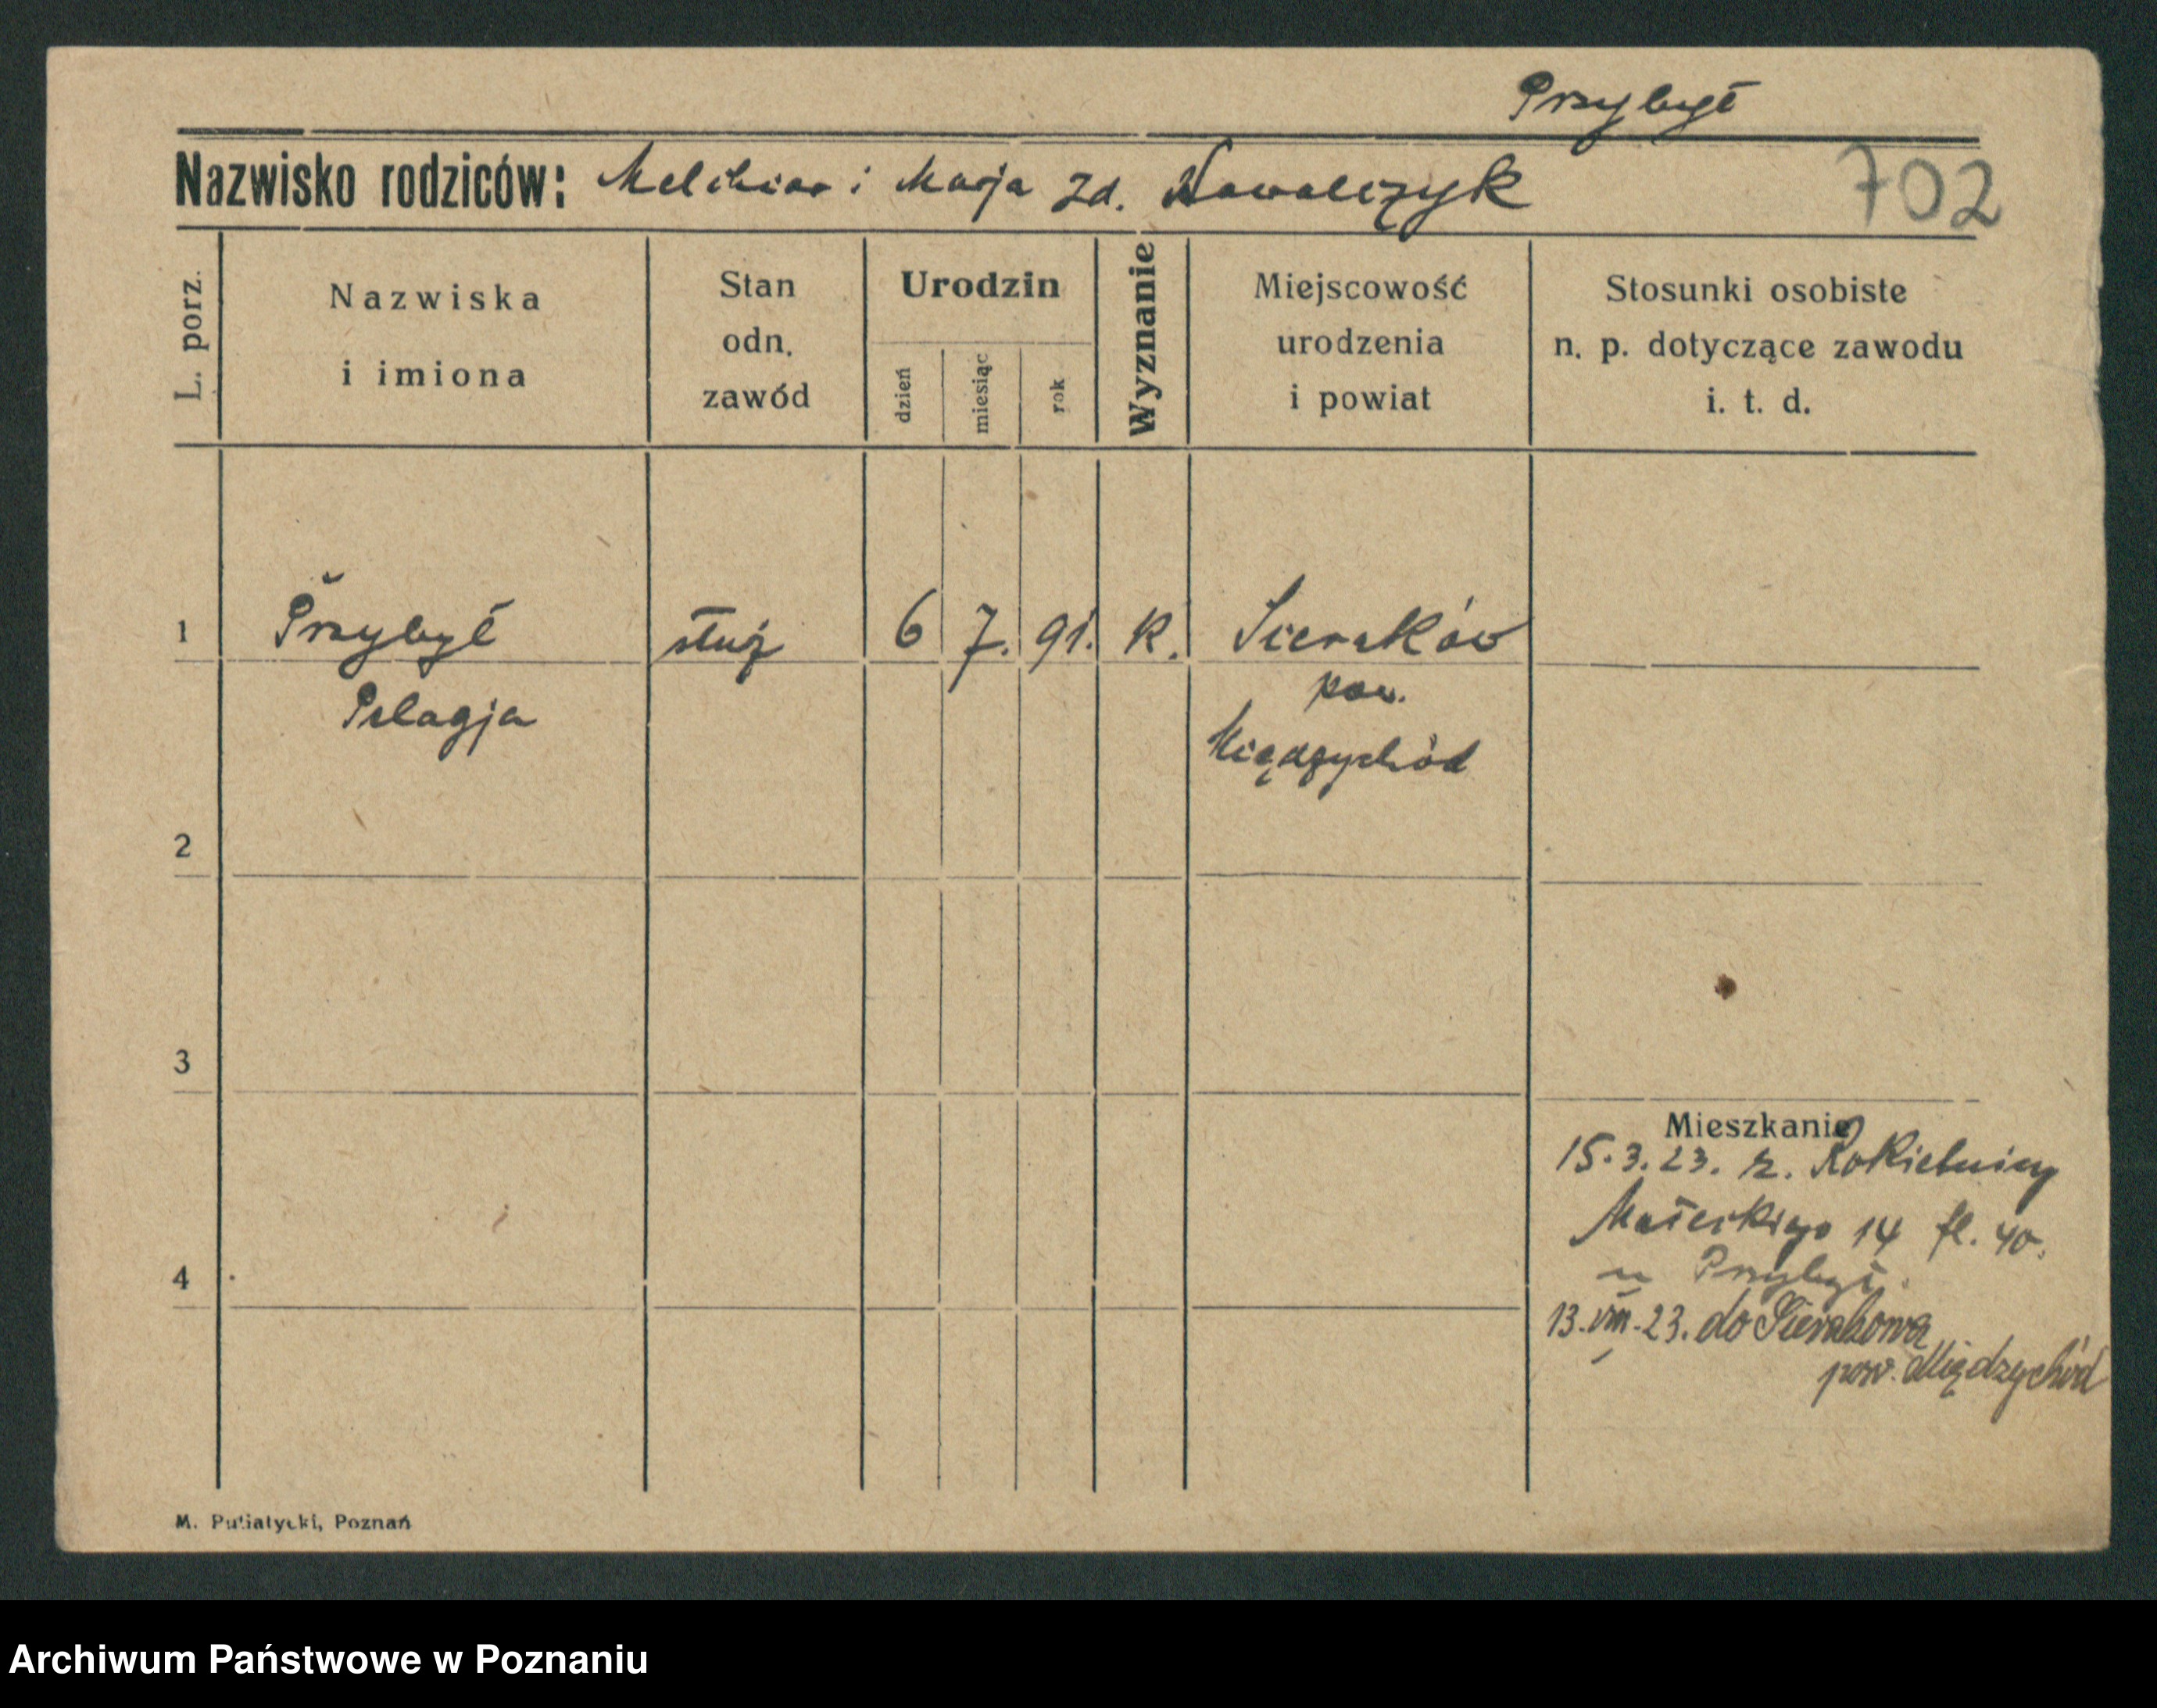 Przybył
Nazwisko rodziców: Melchior i Marja zd. Nowalczyk
702
L. porz.
Nazwiska
i imiona
Stan
odn.
zawód
Urodzin
dzień
miesiąc
rok
Wyznanie
Miejscowość
urodzenia
i powiat
Stosunki osobiste
n. p. dotyczące zawodu
i. t. d.
1 Przybył służ 6 7. 91. K. Sieraków
Pelagja pow.
Międzychód
2
3
4
Mieszkanie
15.3.23. z. Rokietnicy
Małeckiego 14 fl. 40.
u Przybył.
13.VIII.23. do Sierakowa
pow. Międzychód
M. Putiatycki, Poznań
Archiwum Państwowe w Poznaniu